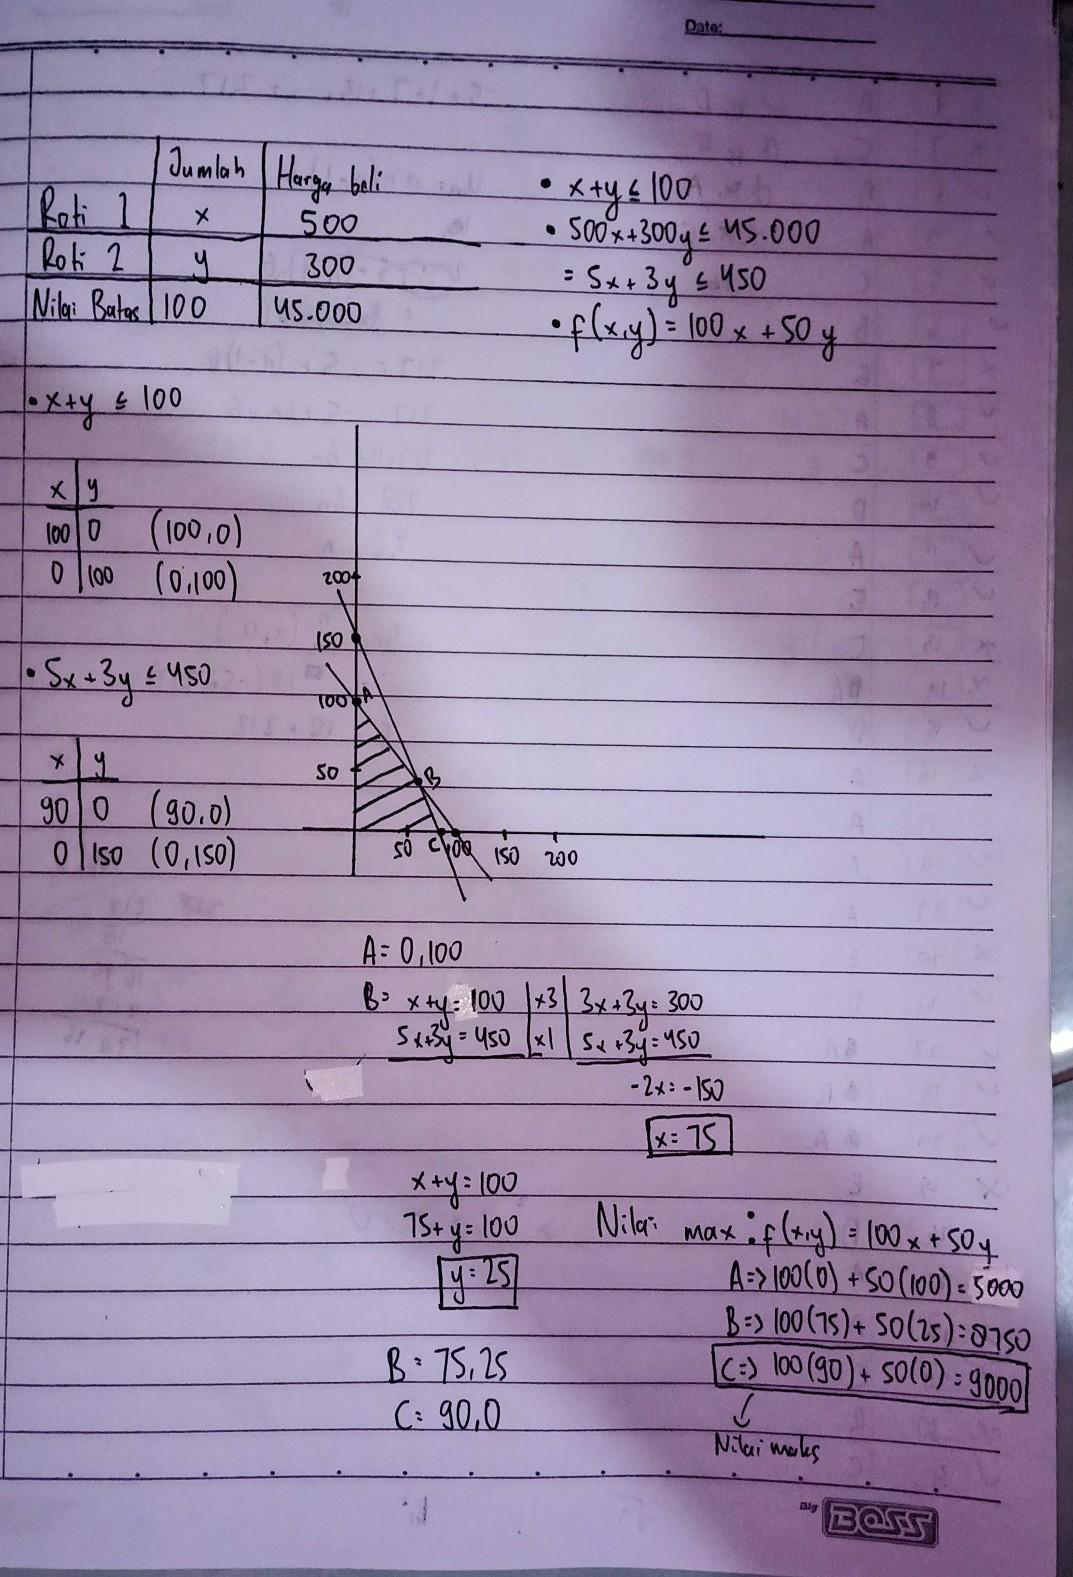 Date:
Jumlah Harga beli
Roti 1 x 500
Roti 2 y 300
Nilai Batas 100 45.000
• x+y ≤ 100
• 500x+300y ≤ 45.000
= 5x+3y ≤ 450
• f(x,y) = 100x + 50y
• x+y ≤ 100
x y
100 0 (100,0)
0 100 (0,100)
• 5x+3y ≤ 450
x y
90 0 (90,0)
0 150 (0,150)
200
150
100 A
50 B
50 C 100 150 200
A = 0,100
B = x+y = 100 |x3| 3x+3y = 300
5x+3y = 450 |x1| 5x+3y = 450
-2x = -150
x = 75
x+y = 100
75+y = 100
y = 25
B = 75,25
C = 90,0
Nilai max : f(x,y) = 100x + 50y
A => 100(0) + 50(100) = 5000
B => 100(75) + 50(25) = 8750
C => 100(90) + 50(0) = 9000
Nilai maks
Big BOSS